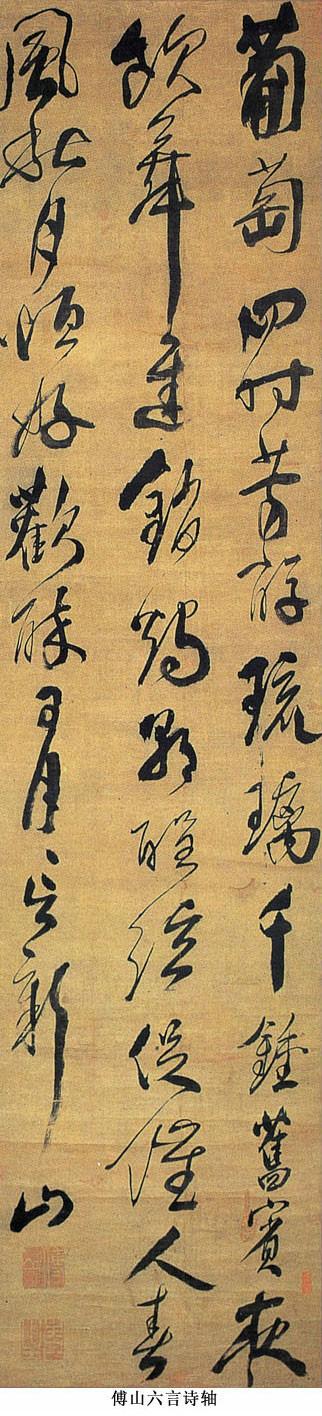 葡萄四時芳醇琉璃千鍾舊賓夜
飲舞遲銷燭朝醒弦促催人春
風秋月恒好歡醉日月言新山
傅山六言诗轴